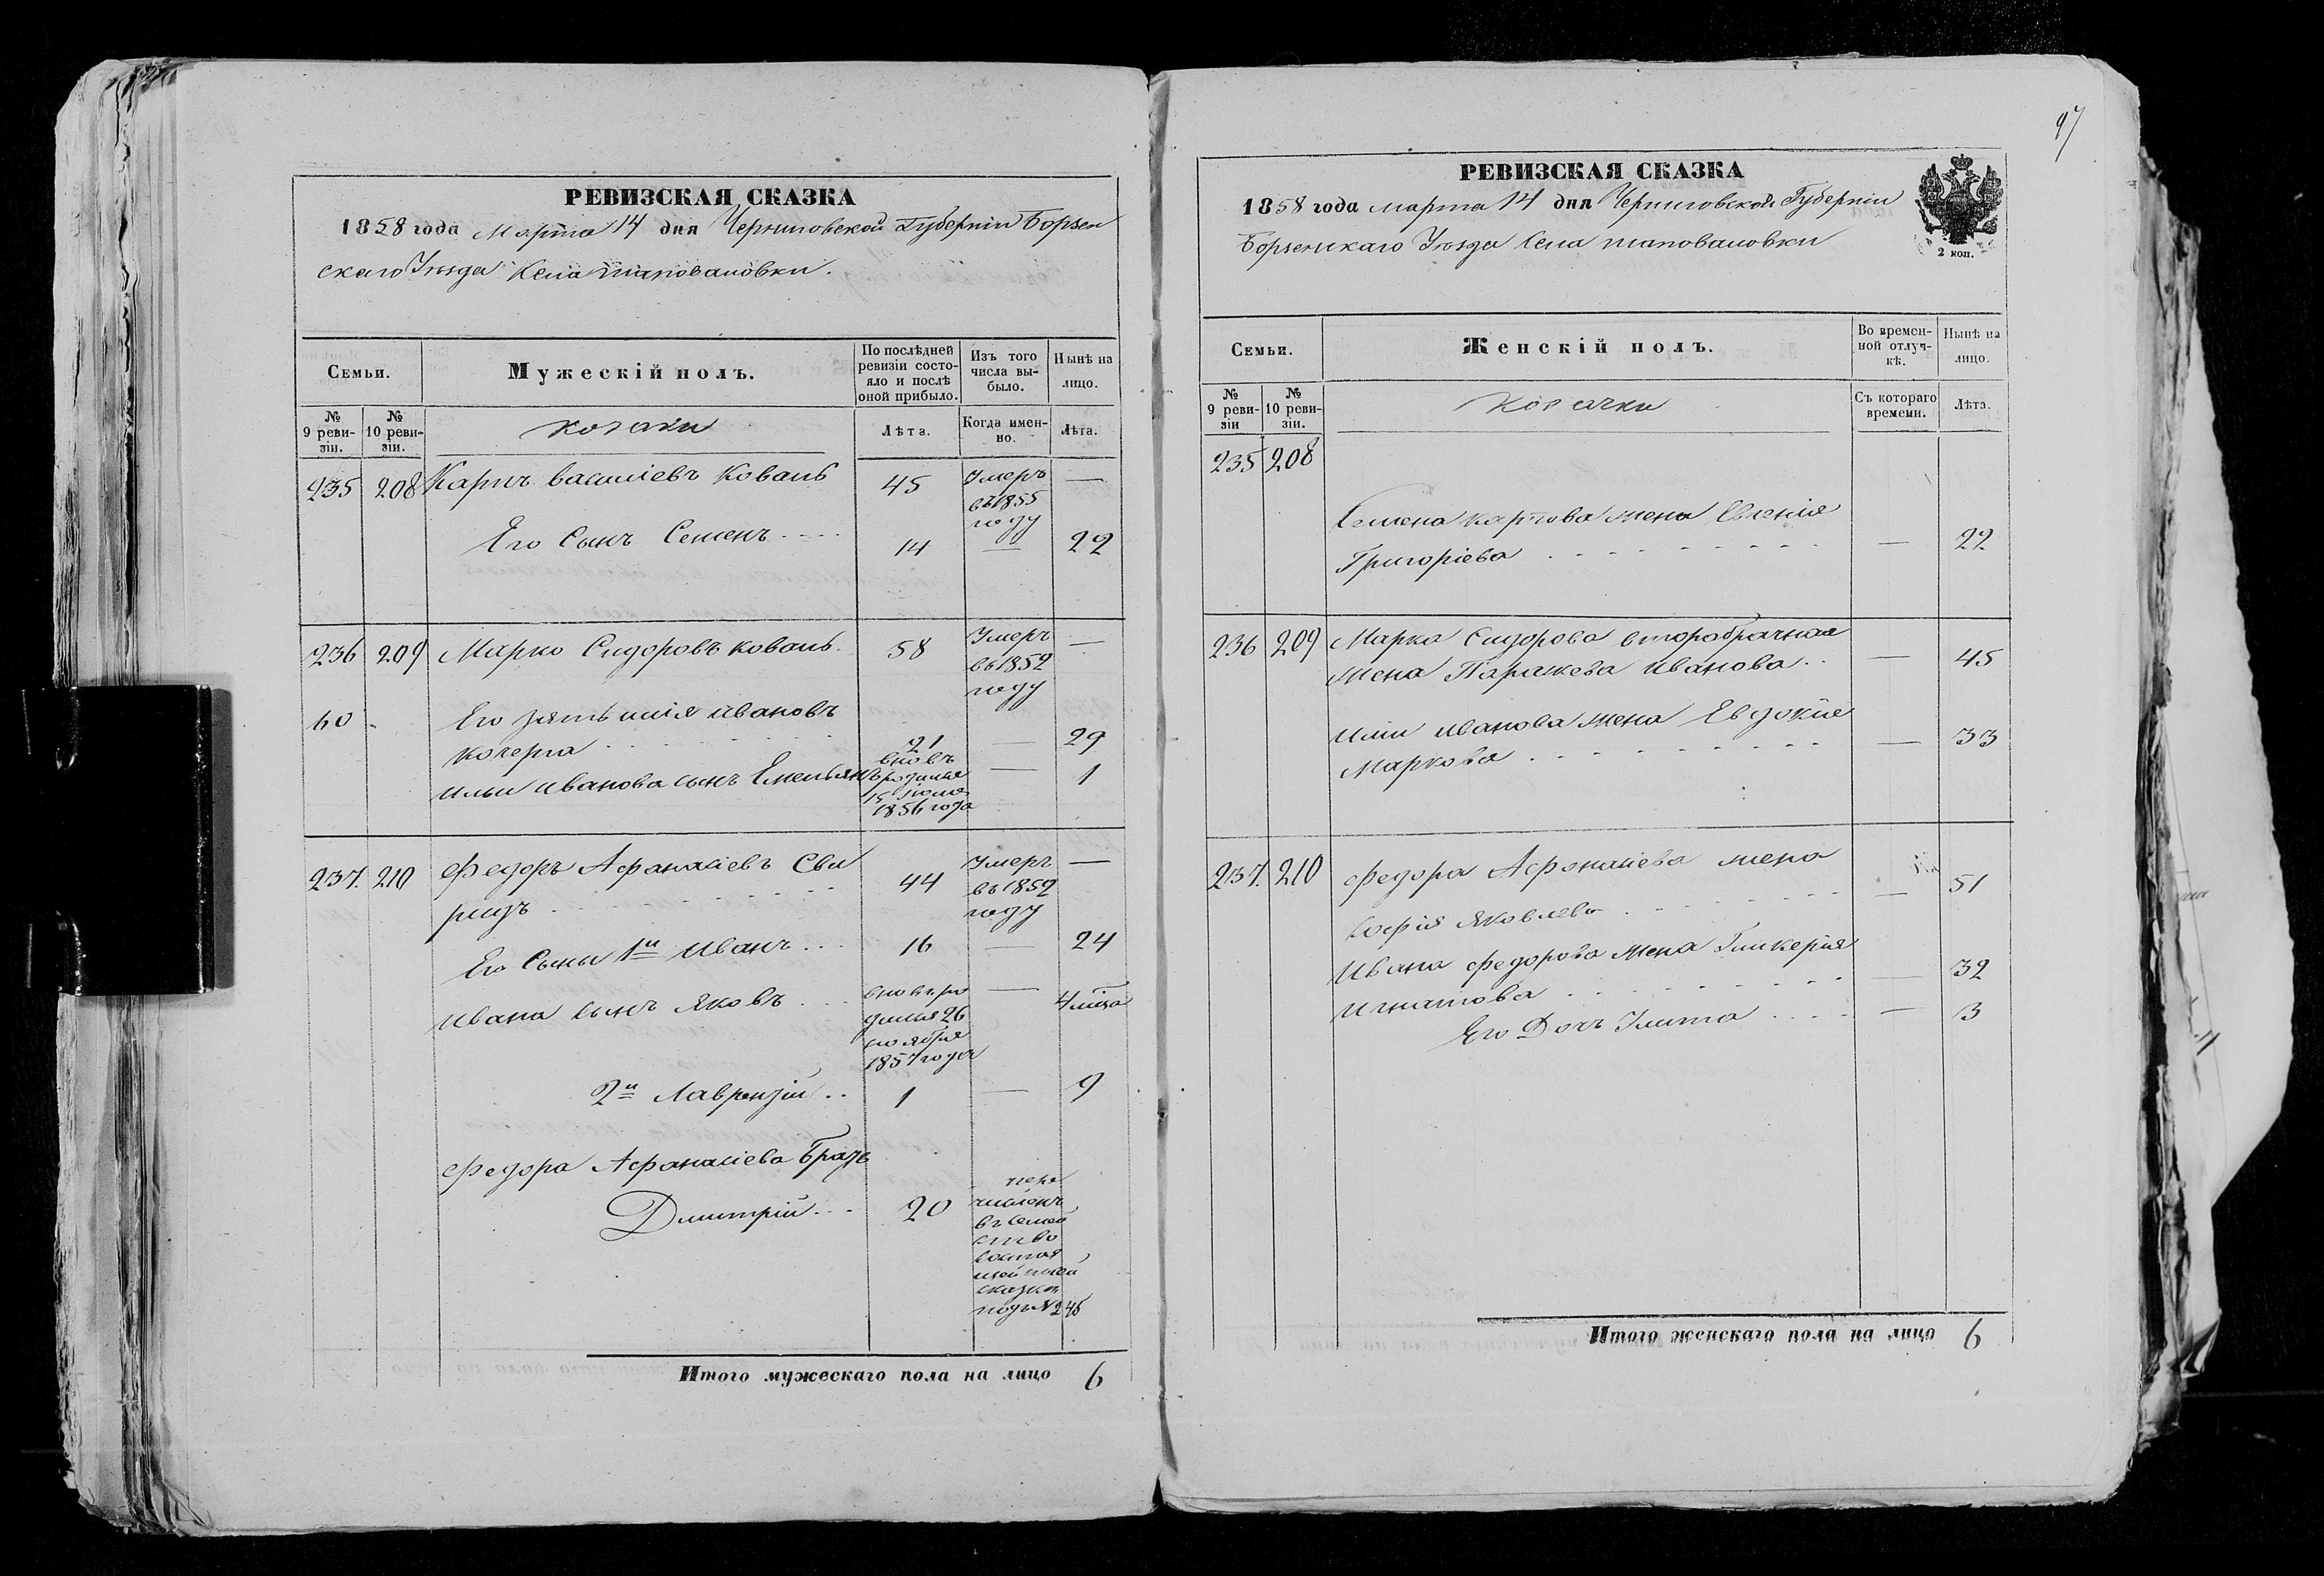 РЕВИЗСКАЯ СКАЗКА
1858 года Марта 14 дня Черниговской Губерніи Борзен
скаго Уѣзда Села Шаповаловки.
Семьи.
Мужескій полъ.
По послѣдней ревизіи состояло и послѣ оной прибыло.
Изъ того числа выбыло.
Нынѣ на лицо.
№ 9 ревизіи.
№ 10 ревизіи.
козаки
Лѣта.
Когда именно.
Лѣта.
235 208 Карпъ Василіевъ Коваль 45 Умеръ —
въ 1855
году
Его Сынъ Семенъ .... 14 — 22
236 209 Марко Сидоровъ Коваль. 58 Умеръ —
въ 1852
году
60 Его зять Илія Ивановъ
кочерга 21 — 29
Ильи Иванова сынъ Емельянъ вновь — 1
родился
15
1856 года
237. 210 Федоръ Афанасіевъ Сви 44 Умеръ —
ридъ въ 1852
году
Его Сыны 1й Иванъ... 16 — 24
Ивана сынъ Яковъ ... вновь ро — 4 мѣца
дился 26
ноября
1857 года
2й Лаврензій .. 1 — 9
Федора Афанасіева Братъ
Дмитрій... 20 пере
численъ
въ семей
ство
состоя
щей сей
сказки
подъ № 245
Итого мужескаго пола на лицо 6
97
РЕВИЗСКАЯ СКАЗКА
1858 года марта 14 дня Черниговской Губерніи
Борзенскаго Уѣзда Села Шаповаловки
2 коп.
Семьи.
Женскій полъ.
Во временной отлучкѣ.
Нынѣ на лицо.
№ 9 ревизіи
№ 10 ревизіи.
козачки
Съ котораго времени.
Лѣта.
235 208
Семена Карпова жена Евгенія
Григоріева — 22
236 209 Марка Сидорова второбрачная
жена Параскева Иванова .. — 45
Иліи Иванова жена Евдокія
Маркова — 33
237. 210 Федора Афонасіева жена
Софія Яковлева — 51
Ивана Федорова жена Гликерія
Игнатова — 32
Его Дочь Улита — 3
Итого женскаго пола на лицо 6